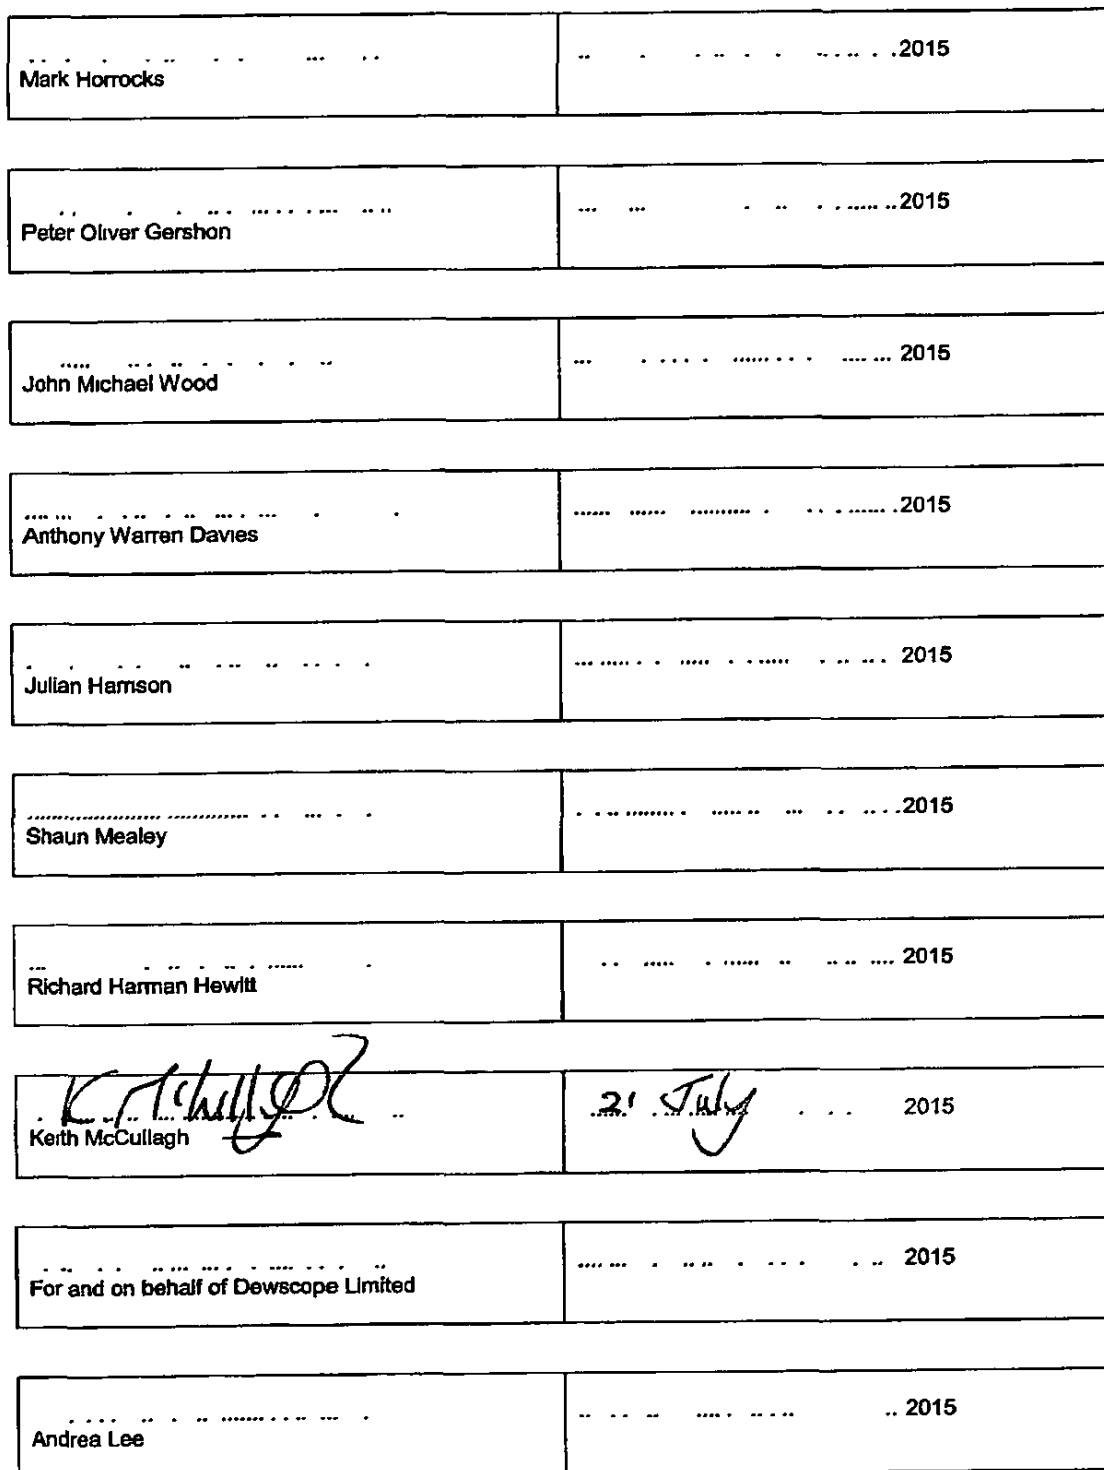 2015
Mark Horrocks
2015
Peter Oliver Gershon
2015
John Michael Wood
2015
Anthony Warren Davies
2015
Julian Harrison
2015
Shaun Mealey
2015
Richard Harman Hewitt
K McCullagh 21 July 2015
Keith McCullagh
2015
For and on behalf of Dewscope Limited
2015
Andrea Lee